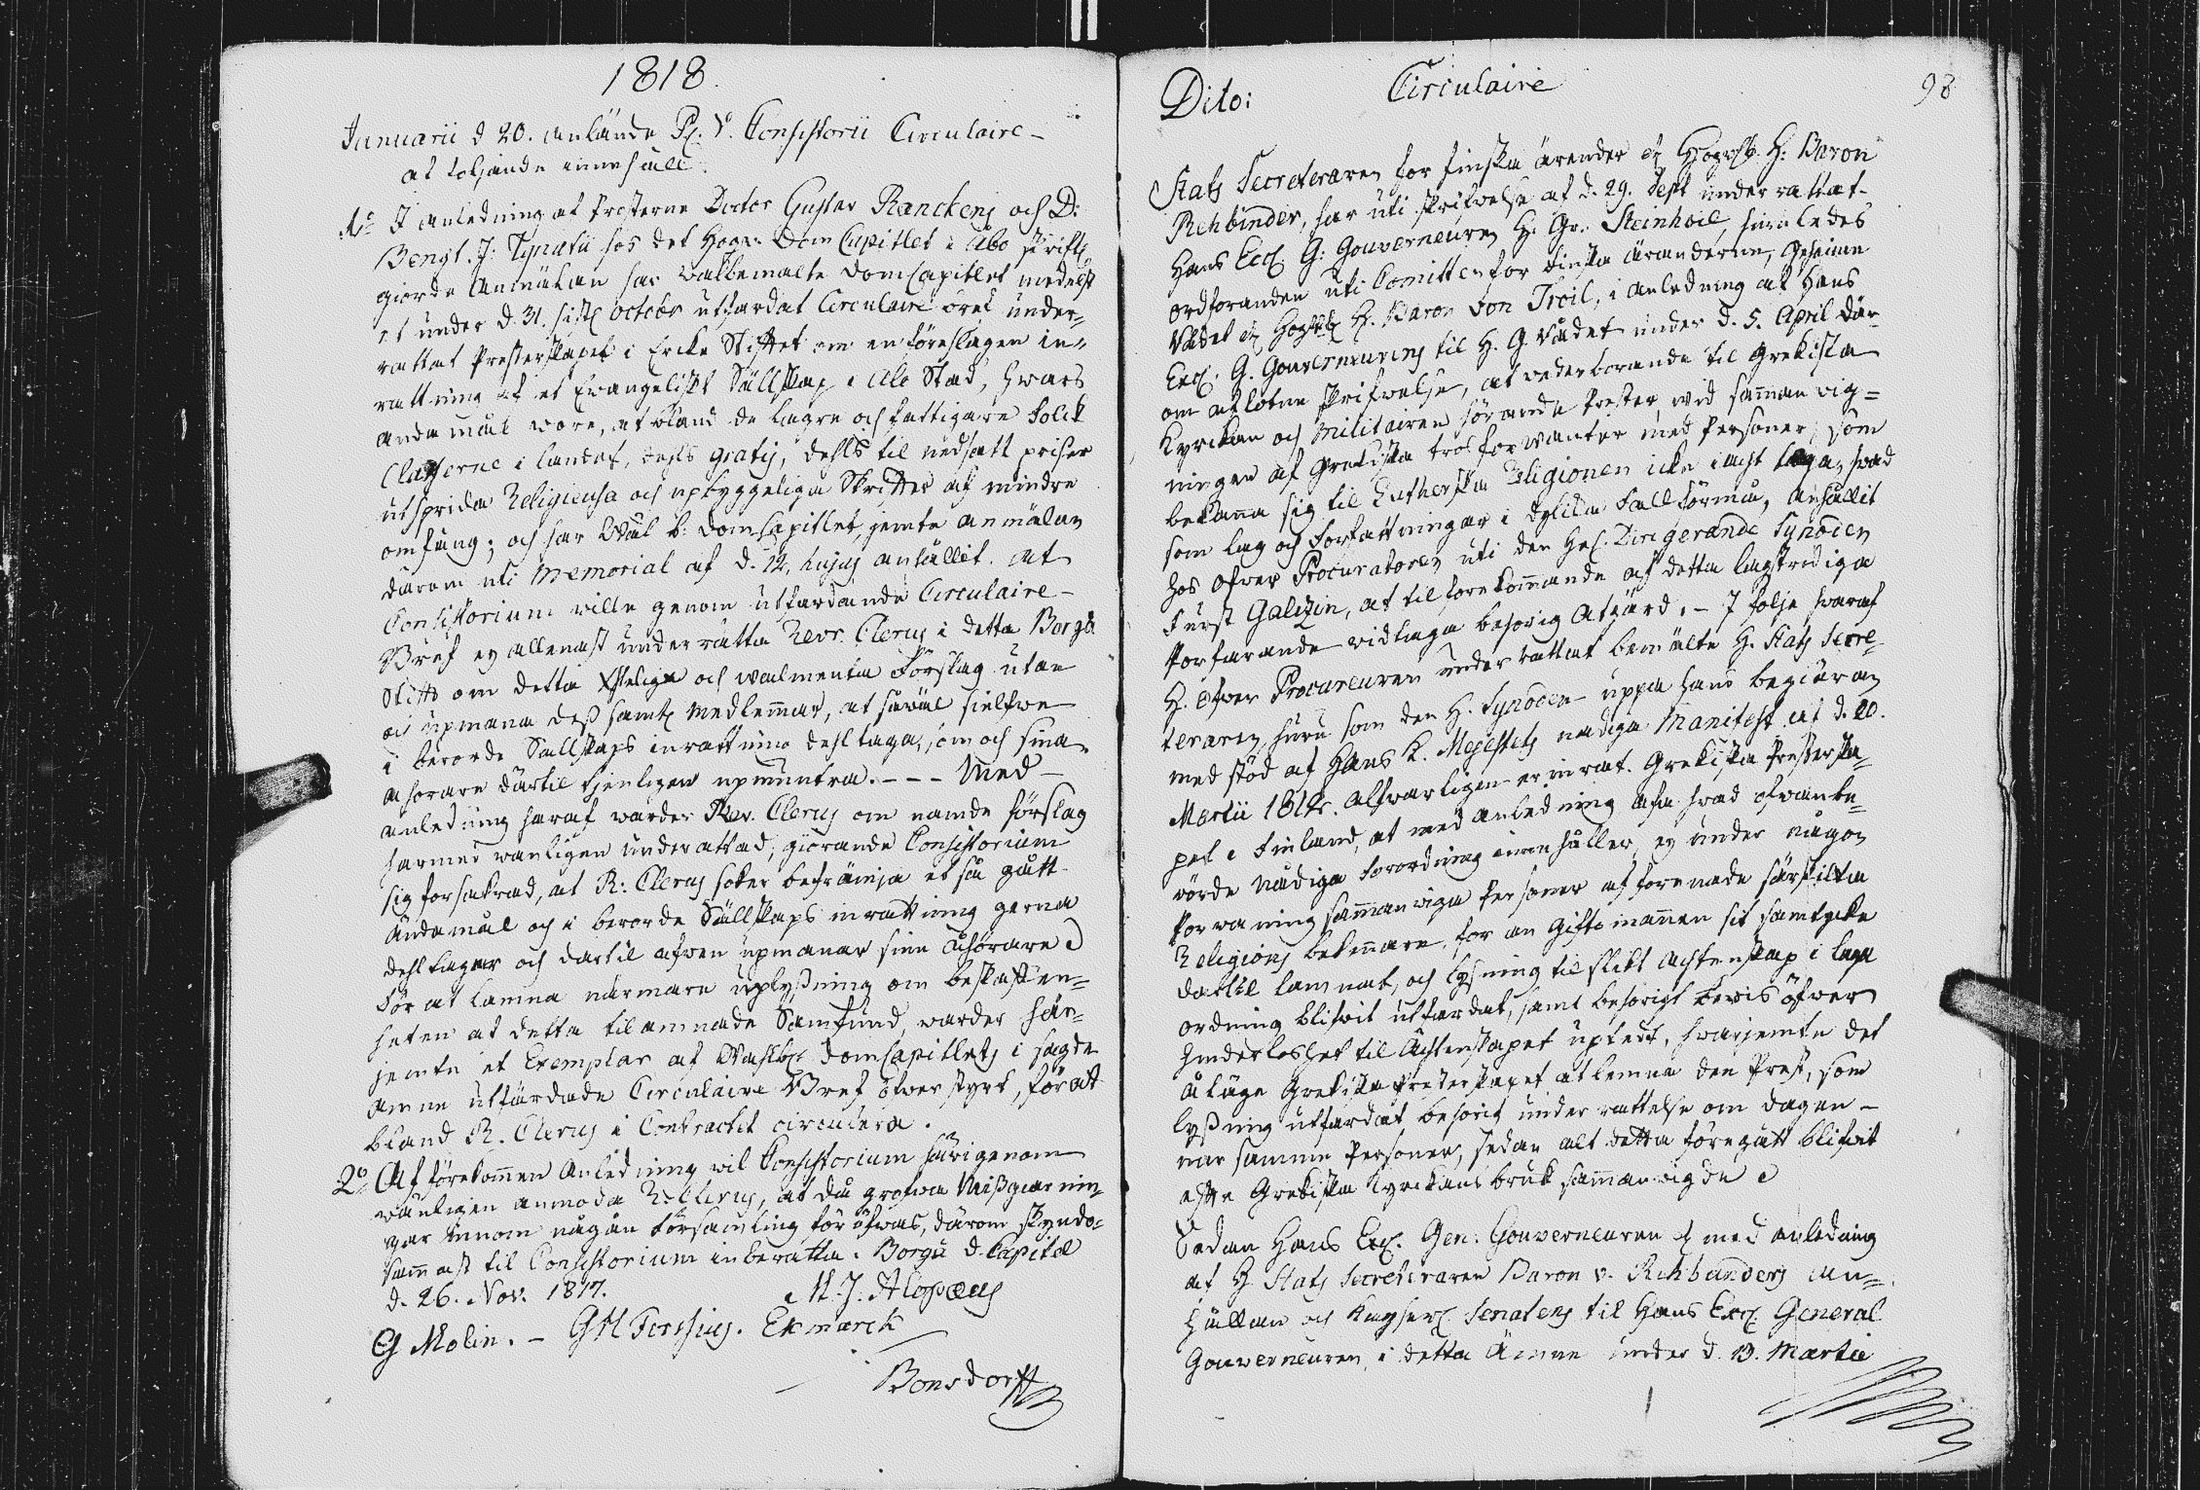 1818.
Januarii d 20. anlände Pl. V. Consistorii Circulaire
af följande innehåll.
1:o I anledning af Presterne Doctor Gustav Ranckens och D:
Bengt. J: Ignatii hos det Högv: Dom Capitlet i Åbo skrifts
giorde Anmälan har wälbemälte DomCapitlet medelst
et under d. 31. sistl october utfärdat Circulaire bref under-
rättat Presterskapet i Ercke Stiftet om en föreslagen in-
rättning af et Evangeliskt Sällskap i Åbo Stad, hwars
ändamål wore, at bland de lägre och fattigare Folck
Classerne i landet, dehls gratis, dehls til nedsatt priser
utsprida Religieusa och upbyggeliga Skrifter af mindre
omfång; och har Wäl b: DomCapitlet, jemte anmälan
därom uti Memorial af d. 12. hujus anhållit at
Consistorium wille genom utfärdande Circulaire
Bref ey allenast underrätta Revr. Clerus i detta Borgå
Stift om detta Xstelige och wälmenta Förslag utan
oc upmana dess samtl medlemmar, at såväl sielfwe
i berörde Sällskaps inrättning dehltaga, som och sina
åhörare därtil tjenligen upmuntra. - - - Med
anledning häraf warder Rev. Clerus om nämde förslag
härmed wänligen underättad, giörande Consistorium
sig försäkrad, at R: Clerus söker befrämja et så godt
ändamål och i berörde Sällskaps inrättning gerna
dehltager och därtil äfwen upmanar sine åhörare
För at lämna närmare uplysning om beskaffen-
heten af detta tilämnade Samfund, warder här-
jemte et Exemplar af Wählbl DomCapitlets i sagde
ämne utfärdade Circulaire Bref öfwerstyrt, för at
bland R. Clerus i Contractet circulera.
2:o Af förekommen Anledning wil Consistorium härigenom
wänligen anmoda R: Clerus, at då grofwa Missgärnin-
gar innom någon Församling föröfwas, därom skynd-
samast til Consistorium inberätta. Borgå d. Capitel
d. 26. Nov. 1817.
M. J. Alopæus
G Molin. - GM Forsius. Ekmarck
Bonsdorff
Dito: Circulaire
98
Stats Secreteraren för Finska ärender Högvelb. H: Baron
Rehbinder, har uti skrifwelse af d. 29. Sept underrättat
Hans Exc. G: Gouverneuren H: Gr. Steinheil, huruledes
ordföranden uti Comitteen för Finska ärenderne, Geheime
Rådet Högvelb H. Baron von Troil, i anledning af Hans
Exc. G. Gouverneurens til H. G Rådet under d. 5. April där
om aflåtne skrifwelse, at wederbörande til Grekiska
Kyrckan och Militairen hörande Prester wid samman vig-
ningen af Grekiska trosförwanter med Personer, som
bekänna sig til Lutherska Religionen icke i acht taga, hwad
som lag och Författningar i dylika Fall förmå, anhållit
hos Öfwer Procuratoren uti den Hel. Dirigerande Synoden
Furst Galizin, at til förekommande af detta lagstridiga
Förfarande widtaga behörig Åtgärd. - I följe hwaraf
H. Öfwer Procureuren underrättat bemälte H. Stats Secre-
teraren, huru som den H. Synoden uppå hans begiäran
med stöd af Hans K. Majestets nådiga Manifest af d. 20.
Martii 1812. Alfwarligen erinrat Grekiska Presterska-
pet i Finland, at med anledning af hwad ofwanbe-
rörde Nådiga Förordning innehåller, ey under någon
Förwäning samman wiga Personer af förenade särskilta
Religions bekännare, för än Giftomannen sit samtycke
därtil lämnat, och lysning til slikt Äktenskap i laga
ordning blifwit utfärdat, samt behörigt bewis öfwer
hinderlöshet til Äktenskapet uptedt, hwarjemte det
ålåge Grekiska Presterskapet at lemna den Prest, som
lysning utfärdat behörig underrättelse om dagen
när samma Personer, sedan alt detta föregått blifwit
efter Grekiska Kyrckans bruk sammanvigde
Sedan Hans Exc. Gen: Gouverneuren med anledning
af H. Stats Secreteraren Baron v. Rehbinders an-
hållan och Keyserl. Senatens til Hans Exc. General
Gouverneuren i detta Ämne under d. 13. Martii